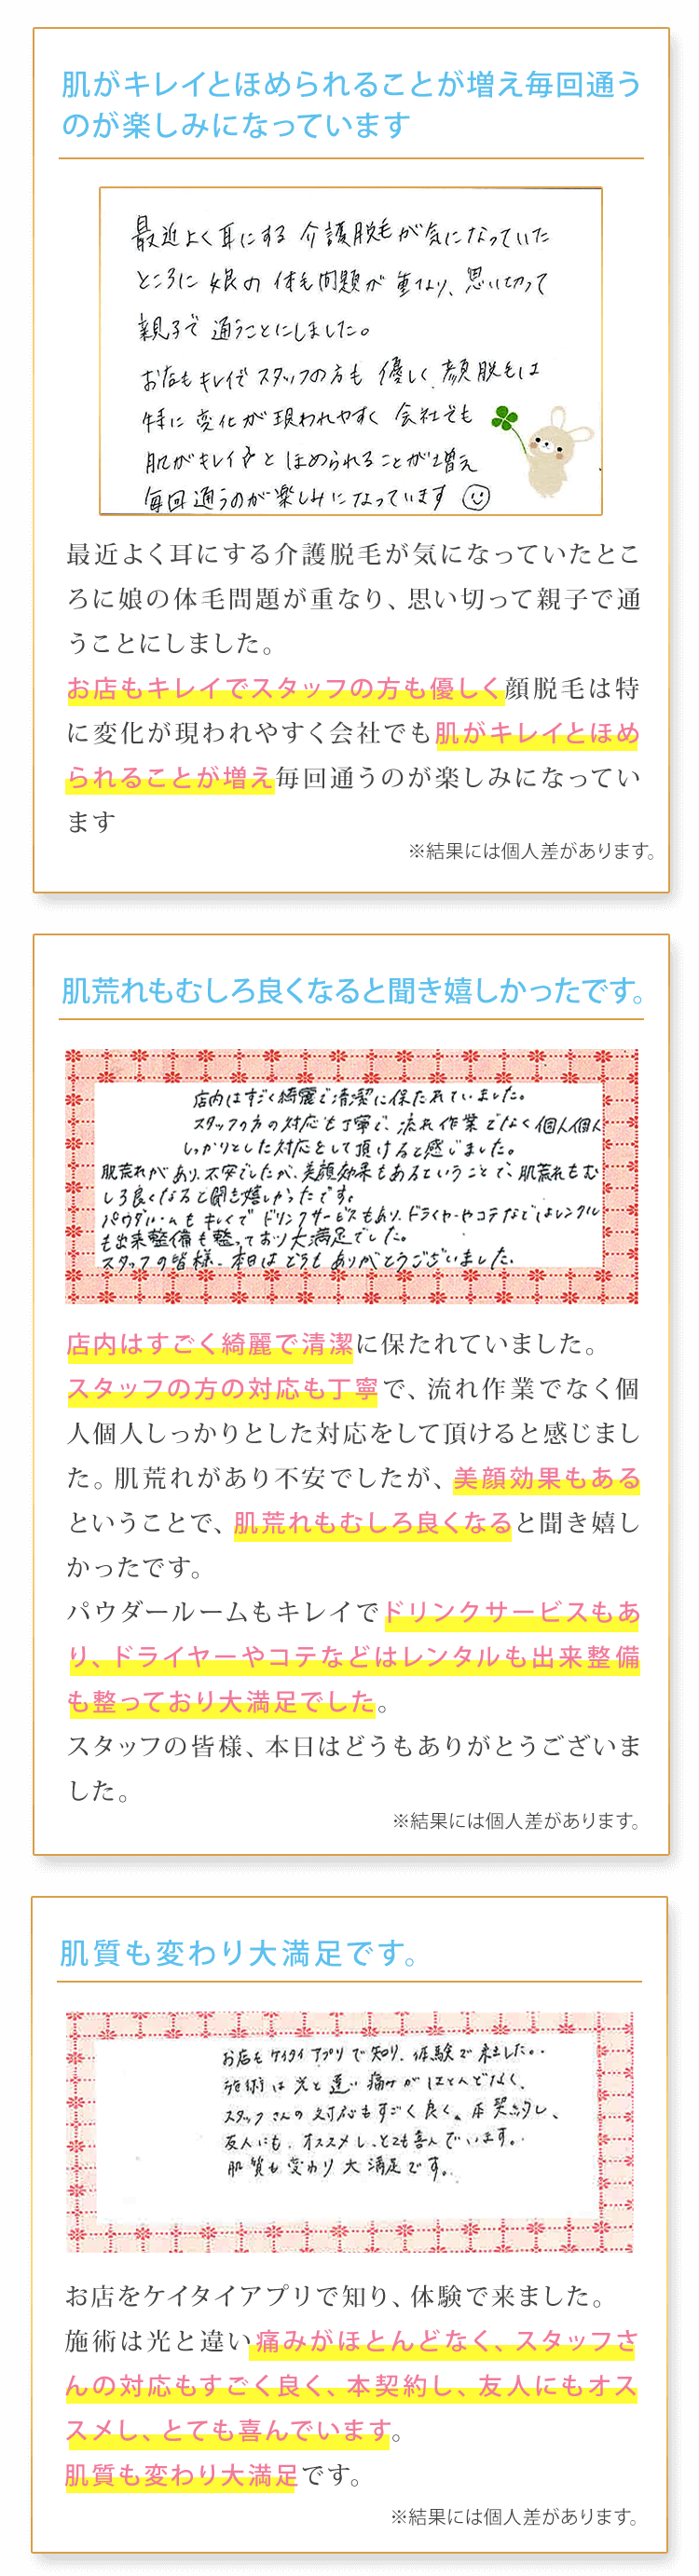 肌がキレイとほめられることが増え毎回通う
のが楽しみになっています
最近よく耳にする介護脱毛が気になっていた
ところに娘の体毛問題が重なり、思い切って
親子で通うことにしました。
お店もキレイでスタッフの方も優しく顔脱毛は
特に変化が現われやすく会社でも
肌がキレイとほめられることが増え
毎回通うのが楽しみになっています
最近よく耳にする介護脱毛が気になっていたとこ
ろに娘の体毛問題が重なり、思い切って親子で通
うことにしました。
お店もキレイでスタッフの方も優しく顔脱毛は特
に変化が現われやすく会社でも肌がキレイとほめ
られることが増え毎回通うのが楽しみになってい
ます
※結果には個人差があります。
肌荒れもむしろ良くなると聞き嬉しかったです。
店内はすごく綺麗で清潔に保たれていました。
スタッフの方の対応も丁寧で、流れ作業でなく個人個人
しっかりとした対応をして頂けると感じました。
肌荒れがあり、不安でしたが、美顔効果もあるということで、肌荒れもむ
しろ良くなると聞き嬉しかったです。
パウダールームもキレイで ドリンクサービスもあり、ドライヤーやコテなどはレンタル
も出来整備も整っており大満足でした。
スタッフの皆様、本日はどうもありがとうございました。
店内はすごく綺麗で清潔に保たれていました。
スタッフの方の対応も丁寧で、流れ作業でなく個
人個人しっかりとした対応をして頂けると感じまし
た。肌荒れがあり不安でしたが、美顔効果もある
ということで、肌荒れもむしろ良くなると聞き嬉し
かったです。
パウダールームもキレイでドリンクサービスもあ
り、ドライヤーやコテなどはレンタルも出来整備
も整っており大満足でした。
スタッフの皆様、本日はどうもありがとうございま
した。
※結果には個人差があります。
肌質も変わり大満足です。
お店をケイタイアプリで知り、体験で来ました。
施術は光と違い痛みがほとんどなく、
スタッフさんの対応もすごく良く、本契約し、
友人にも、オススメし、とても喜んでいます。
肌質も変わり大満足です。
お店をケイタイアプリで知り、体験で来ました。
施術は光と違い痛みがほとんどなく、スタッフさ
んの対応もすごく良く、本契約し、友人にもオス
スメし、とても喜んでいます。
肌質も変わり大満足です。
※結果には個人差があります。